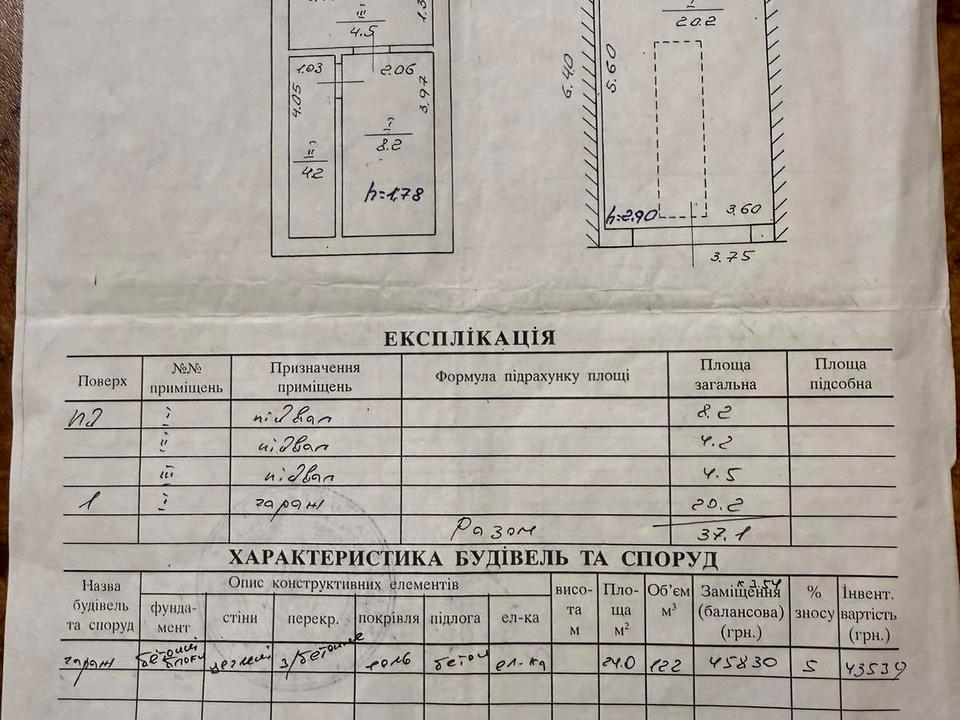 III
4.5
1.03
2.06
4.05
3.97
I
8.2
II
4.2
h=1.78
I
20.2
6.40
5.60
h=2.90
3.60
3.75
ЕКСПЛІКАЦІЯ
Поверх
№№ приміщень
Призначення приміщень
Формула підрахунку площі
Площа загальна
Площа підсобна
пд I підвал 8.2
II підвал 4.2
III підвал 4.5
1 I гараж 20.2
Разом 37.1
ХАРАКТЕРИСТИКА БУДІВЕЛЬ ТА СПОРУД
Назва будівель та споруд
Опис конструктивних елементів
фунда-мент
стіни
перекр.
покрівля
підлога
ел-ка
висо-та м
Пло-ща м²
Об'єм м³
к 3.54
Заміщення (балансова) (грн.)
% зносу
Інвент. вартість (грн.)
гараж бетонні блоки цегляні з/бетонне толь бетон ел-ка 24.0 122 45830 5 43539